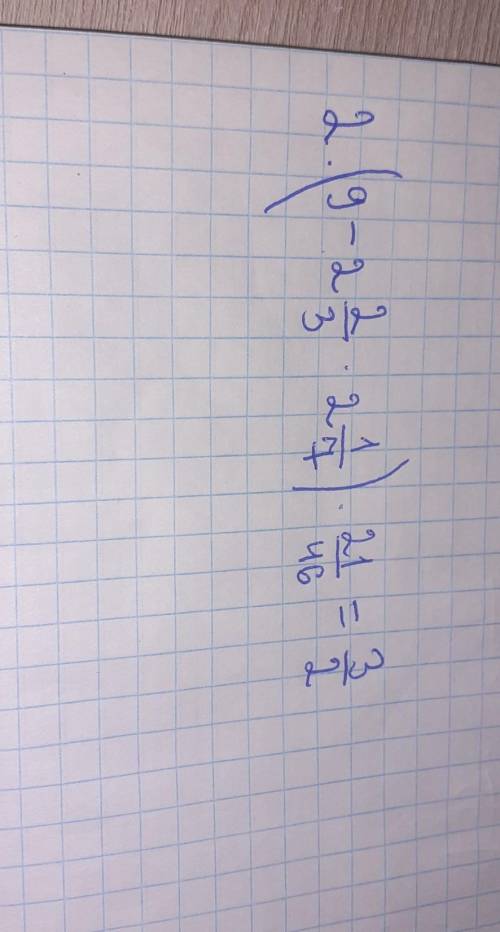 2. (9 - 2 2/3 · 2 1/7) · 21/46 = 3/2